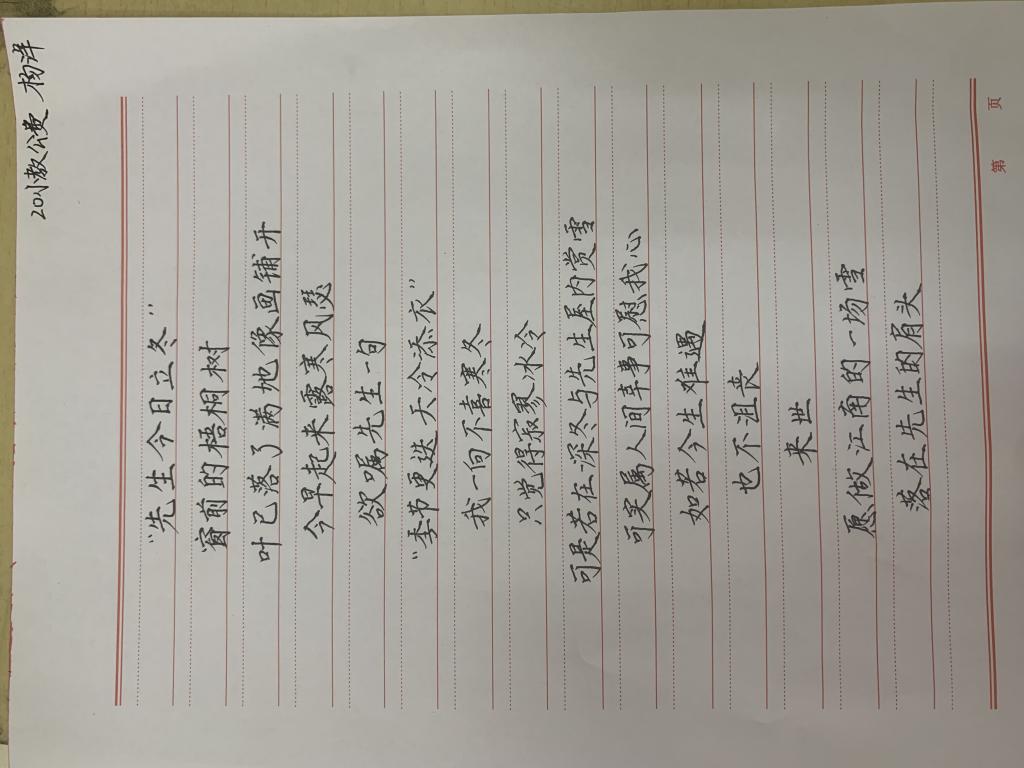 20小教公费 杨洋
“先生今日立冬”
窗前的梧桐树
叶已落了满地像画铺开
今早起来露寒风瑟
欲嘱先生一句
“季节更迭天冷添衣”
我一向不喜寒冬
只觉得寂寥冰冷
可是若在深冬与先生屋内赏雪
可实属人间幸事可慰我心
如若今生难遇
也不沮丧
来世
愿做江南的一场雪
落在先生的肩头
第 页